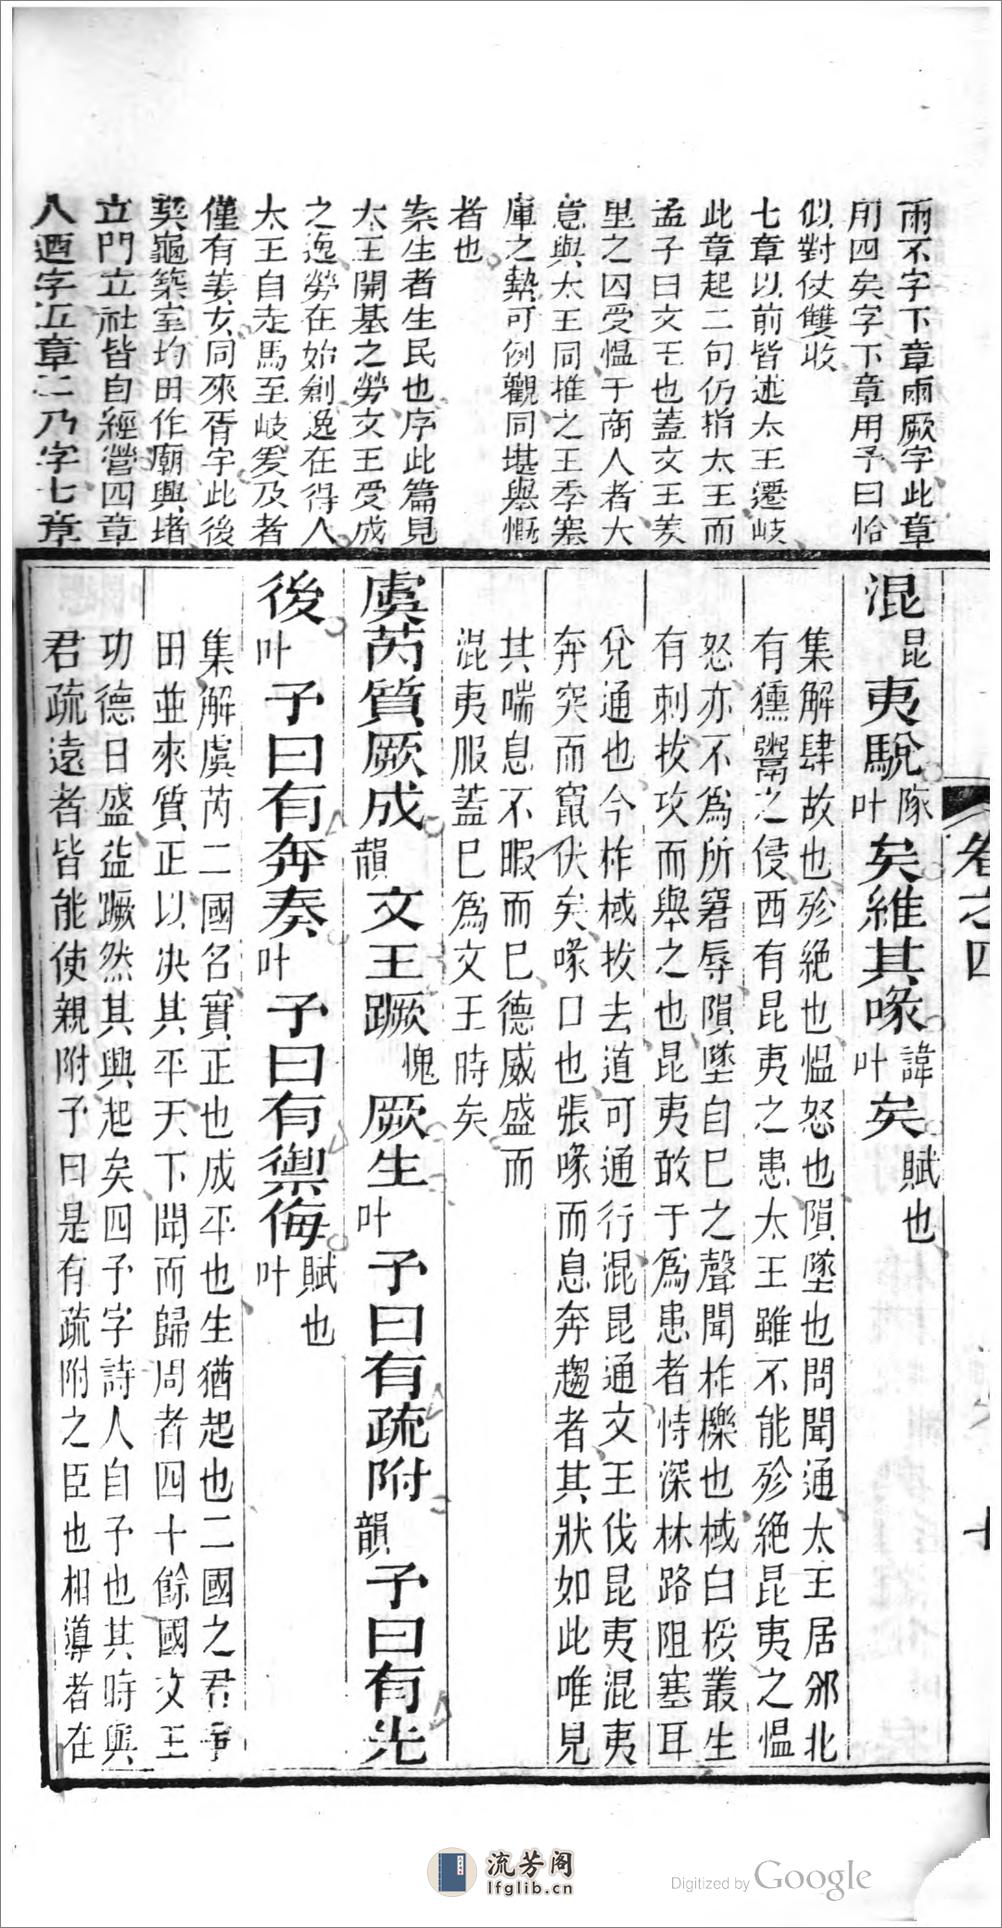 兩不字下章兩厥字此章
用四矣字下章用予曰恰
似對仗雙收
七章以前皆述太王遷岐
此章起二句仍指太王而
孟子曰文王也蓋文王羑
里之囚受愠于商人者大
意與太王同推之王季塞
庫之熱可例觀同堪舉慨
者也
柰生者生民也序此篇見
太王開基之勞文王受成
之逸勞在始創逸在得人
太王自走馬至岐爰及者
僅有姜女同來胥字此後
契龜築室均田作廟興堵
立門立社皆自經營四章
八迺字五章二乃字七章
混昆夷駾隊叶矣維其喙諱叶矣賦也
集解肆故也殄絶也愠怒也隕墜也問聞通太王居邠北
有獯鬻之侵西有昆夷之患太王雖不能殄絶昆夷之愠
怒亦不爲所窘辱隕墜自已之聲聞柞櫟也棫白桵叢生
有刺拔攻而舉之也昆夷敢于爲患者恃深林路阻塞耳
兌通也今柞棫拔去道可通行混昆通文王伐昆夷混夷
奔突而竄伏矣喙口也張喙而息奔趨者其狀如此唯見
其喘息不暇而已德威盛而
混夷服蓋已爲文王時矣
虞芮質厥成韻文王蹶愧厥生叶予曰有疏附韻予曰有先
後叶予曰有奔奏叶予曰有禦侮叶賦也
集解虞芮二國名質正也成平也生猶起也二國之君爭
田並來質正以决其平天下聞而歸周者四十餘國文王
功德日盛益蹶然其興起矣四予字詩人自予也其時與
君疏遠者皆能使親附予曰是有疏附之臣也相導者在
卷之四
流芳阁
lfglib.cn
Digitized by Google